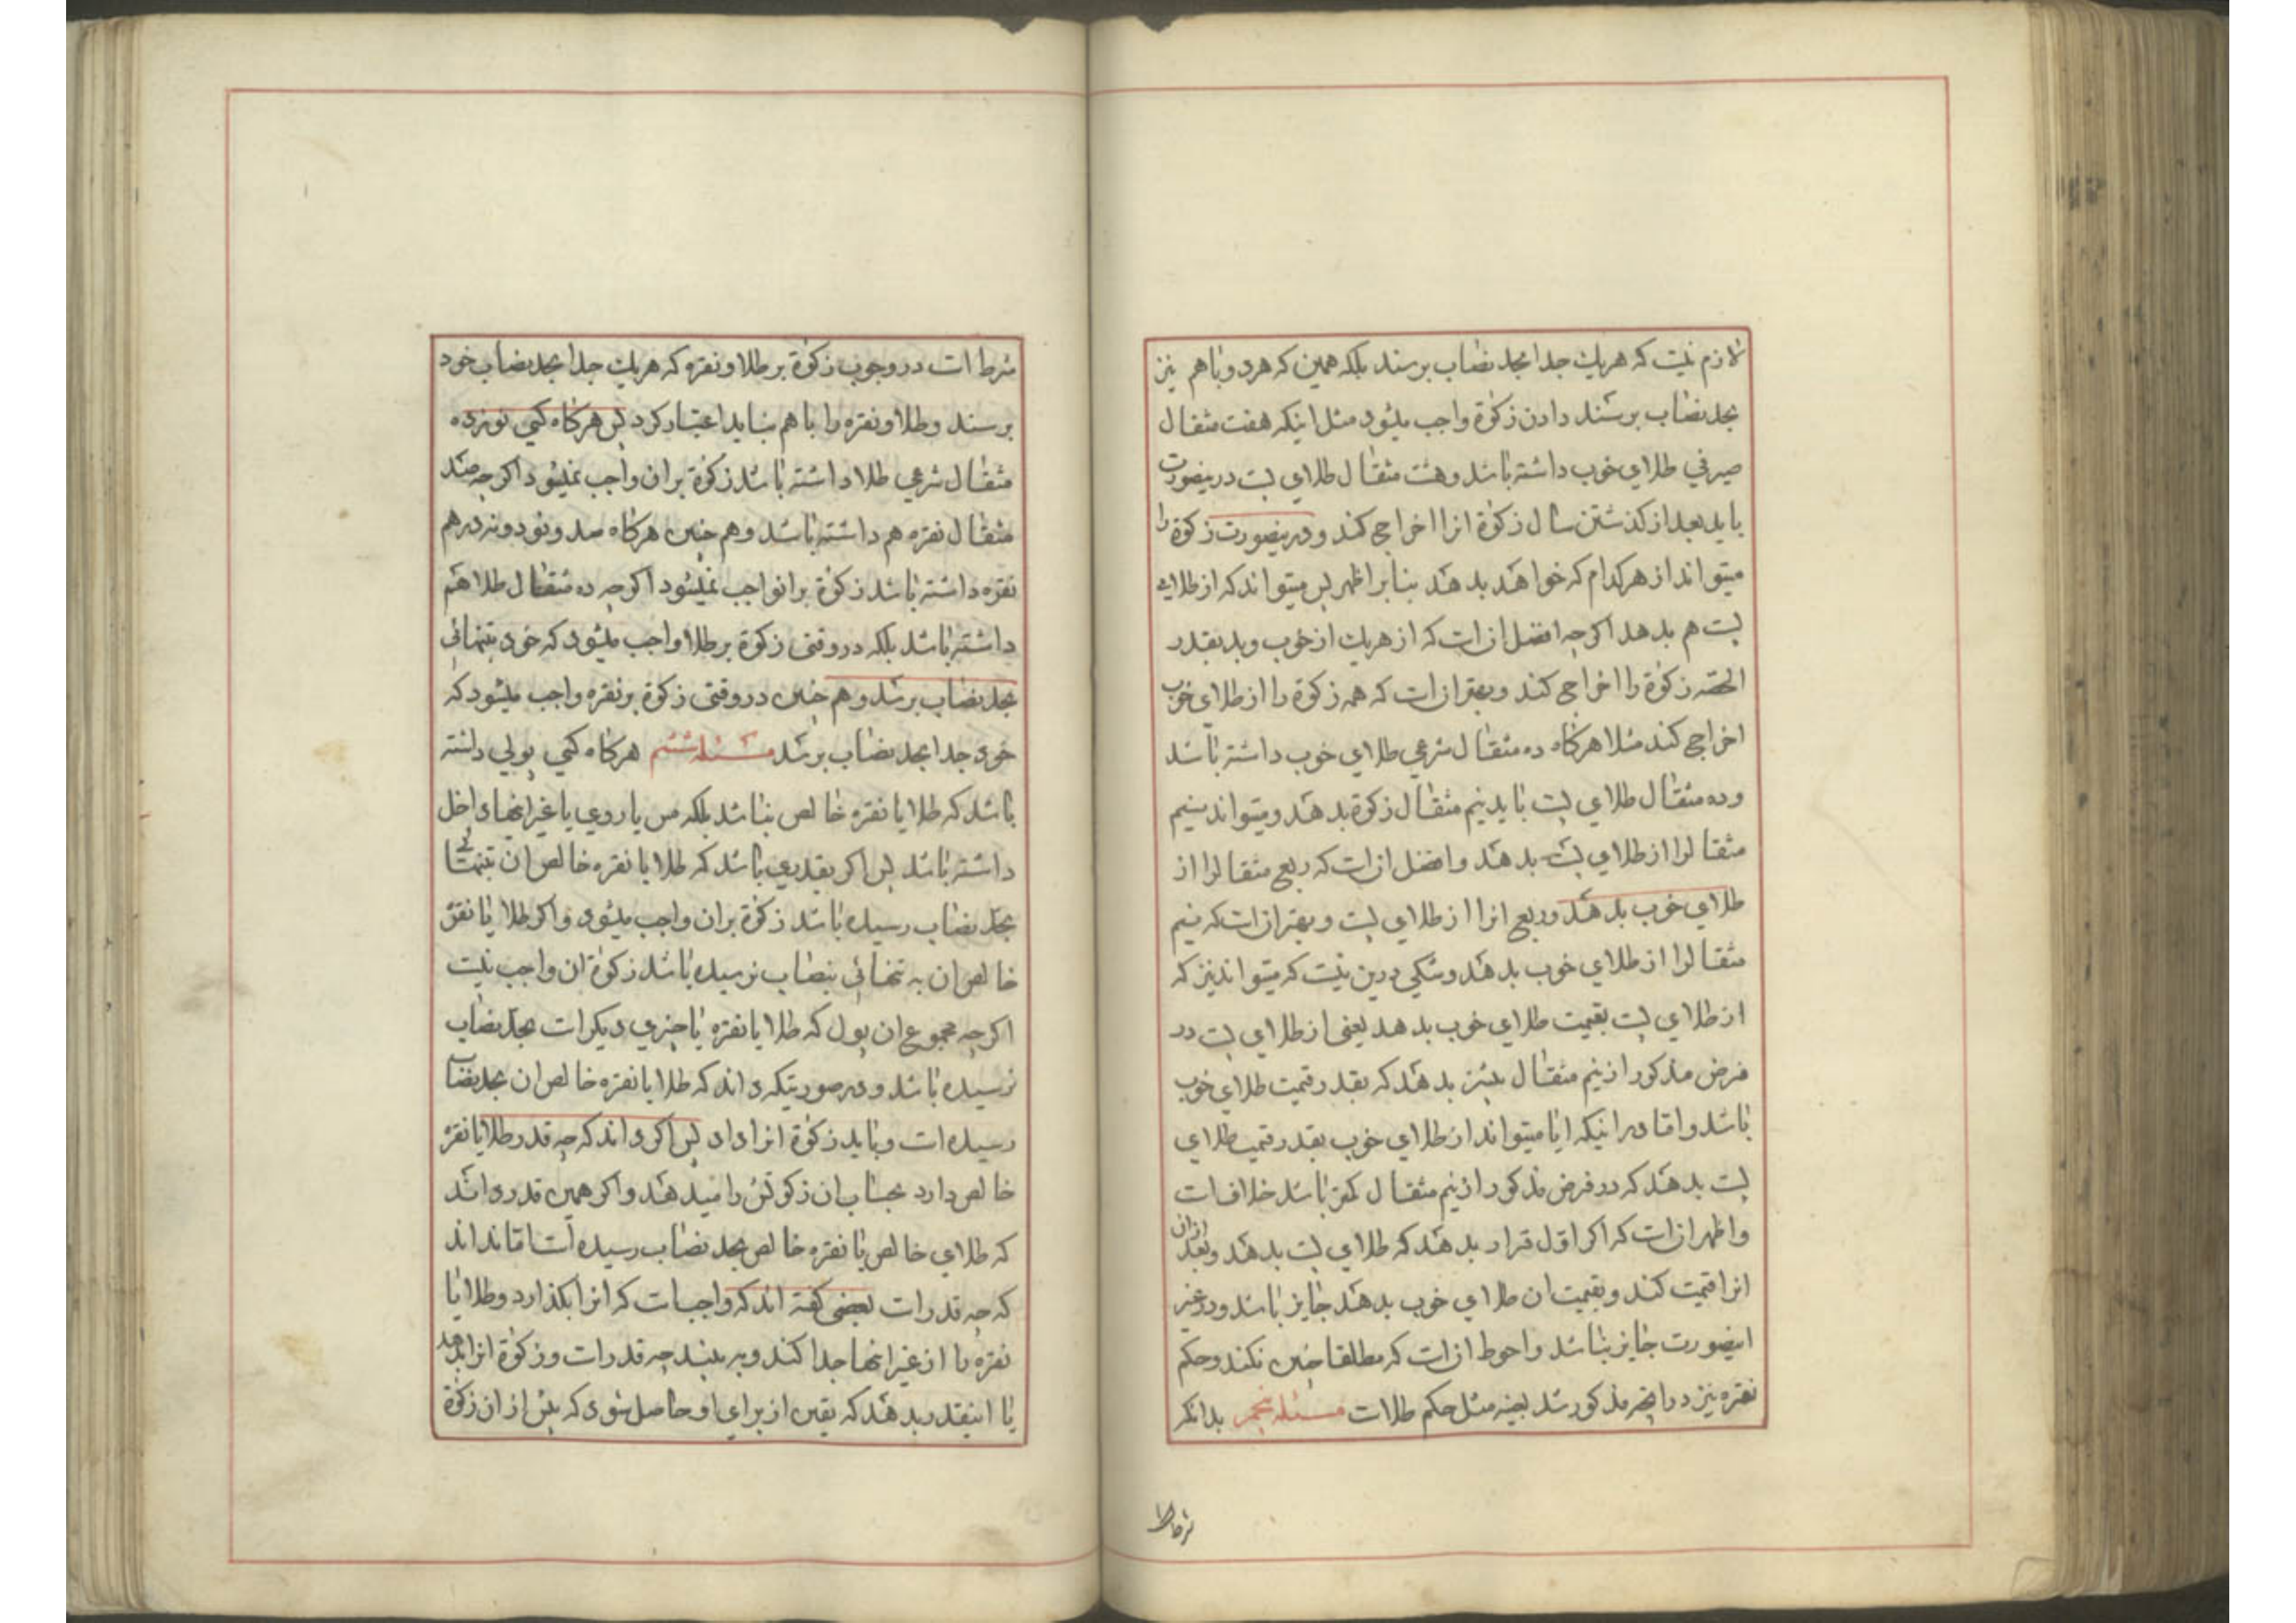 لازم نیست که هریك جدا بحد نصاب برسند بلکه همین که هردو باهم نیز
بحد نصاب برسند دادن زکوة واجب میشود مثل اینکه هفت مثقال
صیرفي طلاي خوب داشته باشد وهشت مثقال طلاي پست درینصورت
باید بعد از کذشتن سال زکوة انرا اخراج کند ودرینصورت زکوة را
میتواند از هرکدام که خواهد بدهد بنابر اظهر پس میتواند که از طلاي
پست هم بدهد اکرچه افضل ان است که از هریك از خوب وبد بقدر
الحصّه زکوة را اخراج کند وبهتر ان است که همه زکوة را از طلاي خوب
اخراج کند مثلا هرکاه ده مثقال شرعي طلاي خوب داشته باشد
وده مثقال طلاي پست باید نیم مثقال زکوة بدهد ومیتواند نیم
مثقالرا از طلاي پست بدهد وافضل ان است که ربع مثقالرا از
طلاي خوب بدهد وربع انرا از طلاي پست وبهتر ان است که نیم
مثقالرا از طلاي خوب بدهد وشکي درین نیست که میتواند نیز که
از طلاي پست بقیمت طلاي خوب بدهد یعنی از طلاي پست در
فرض مذکور از نیم مثقال بیشتر بدهد که بقدر قیمت طلاي خوب
باشد واما در اینکه ایا میتواند از طلاي خوب بقدر قیمت طلاي
پست بدهد که در فرض مذکور از نیم مثقال کمتر باشد خلاف است
واظهر ان است که اکر اوّل قرار بدهد که طلاي پست بدهد وبعد ازان
انرا قیمت کند وبقیمت ان طلاي خوب بدهد جایز باشد ودر غیر
اینصورت جایز نباشد واحوط ان است که مطلقا چنین نکند وحکم
نقره نیز در انچه مذکور شد بعینه مثل حکم طلاست مسئله پنجم بدانکه
شرط است در وجوب زکوة بر طلا ونقره که هریك جدا بحد نصاب خود
برسند وطلا ونقره را باهم نباید اعتبار کرد پس هرکاه کسي نوزده
مثقال شرعي طلا داشته باشد زکوة بر ان واجب نمیشود اکرچه صد
مثقال نقره هم داشته باشد وهم چنین هرکاه صد ونود ونه درهم
نقره داشته باشد زکوة بر انواجب نمیشود اکرچه ده مثقال طلا هم
داشته باشد بلکه در وقتی زکوة بر طلا واجب میشود که خود بتنهائي
بحد نصاب برسد وهم چنین در وقتی زکوة بر نقره واجب میشود که
خود جدا بحد نصاب برسد مسئله ششم هرکاه کسي پولي داشته
باشد که طلا یا نقره خالص نباشد بلکه مس یا روي یا غیر اینها داخل
داشته باشد پس اکر بقدري باشد که طلا یا نقره خالص ان بتنهائي
بحدّ نصاب رسیده باشد زکوة بران واجب میشود واکر طلا یا نقره
خالص ان به تنهائي بنصاب نرسیده باشد زکوة ان واجب نیست
اکرچه مجموع ان پول که طلا یا نقره با چیزي دیکر است بحدّ نصاب
رسیده باشد ودر صورتیکه داند که طلا یا نقره خالص ان بحد نصاب
رسیده است وباید زکوة انرا داد پس اکر داند که چه قدر طلا یا نقره
خالص دارد بحساب ان زکوتش را میدهد واکر همین قدر داند
که طلاي خالص یا نقره خالص بحد نصاب رسیده است اما نداند
که چه قدر است بعضی کفته اند که واجب است که انرا بکذارد وطلا یا
نقره را از غیر انها جدا کند وبه بیند چه قدر است وزکوة انرا بدهد
یا اینقدر بدهد که یقین از براي او حاصل شود که بیش از ان زکوة